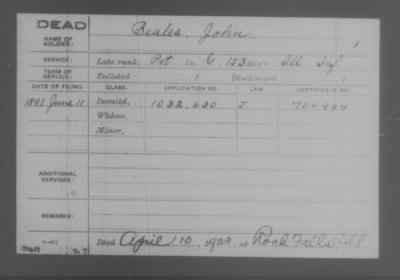 DEAD
NAME OF SOLDIER: Beales, John
SERVICE: Late rank, Pvt Co. C, 153 Regt Ill Inf
TERM OF SERVICE: Enlisted 1 Discharged 1
DATE OF FILING. CLASS. APPLICATION NO. LAW. CERTIFICATE NO.
1891 June 11 Invalid, 1022,620 J
Widow,
Minor,
ADDITIONAL SERVICES:
REMARKS:
Died April 10, 1923, at Rock Falls, Ill